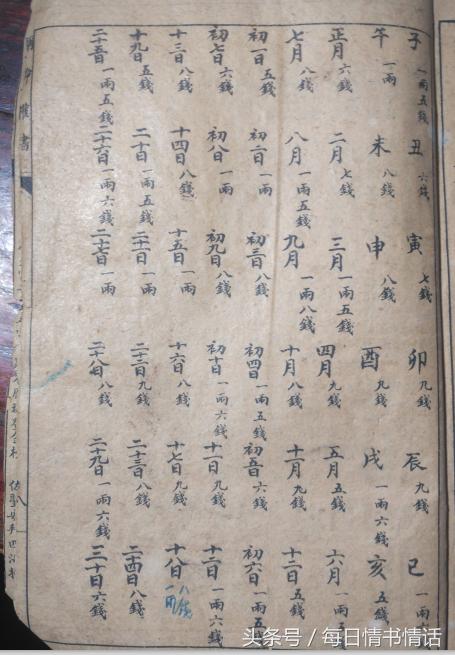 子 一兩五錢 丑 六錢 寅 七錢 卯 九錢 辰 九錢 巳 一兩
午 一兩 未 八錢 申 八錢 酉 九錢 戌 一兩六錢 亥 五錢
正月 六錢 二月 七錢 三月 一兩五錢 四月 九錢 五月 五錢 六月 一兩五
七月 八錢 八月 一兩五錢 九月 一兩八錢 十月 八錢 十一月 九錢 十二月 五錢
初一日 五錢 初二日 一兩 初三日 八錢 初四日 一兩五錢 初五日 六錢 初六日 一兩五錢
初七日 六錢 初八日 一兩 初九日 八錢 初十日 一兩六錢 十一日 九錢 十二日 一兩六錢
十三日 八錢 十四日 八錢 十五日 一兩 十六日 八錢 十七日 九錢 十八日 八錢 一兩
十九日 五錢 二十日 一兩五錢 二十一日 一兩 二十二日 九錢 二十三日 八錢 二十四日 八錢
二十五日 一兩五錢 二十六日 一兩六錢 二十七日 一兩 二十八日 八錢 二十九日 一兩六錢 三十日 六錢
头条号 / 每日情书情话